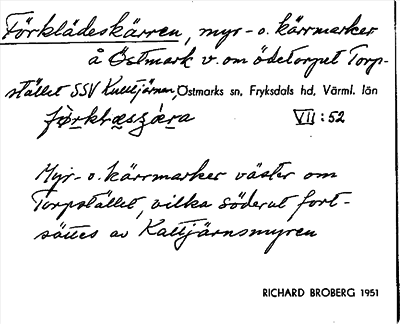 Förklädeskärren, myr- o. kärrmarker
å Östmark v. om ödetorpet Torp-
stället SSV Kattjärnen, Östmarks sn, Fryksdals hd, Värml. län
VII:52
Myr- o. kärrmarker väster om
Torpstället, vilka söderut fort-
sättes av Kattjärnsmyren
RICHARD BROBERG 1951